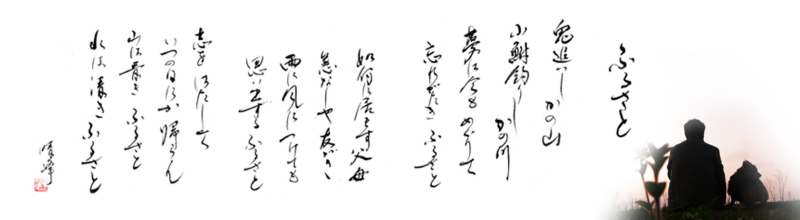 ふるさと
兎追いし かの山
小鮒釣りし かの川
夢は今も めぐりて
忘れがたき ふるさと
如何に居ます 父母
恙なしや 友がき
雨に風に つけても
思い出ずる ふるさと
志を はたして
いつの日にか 帰らん
山は青き ふるさと
水は清き ふるさと